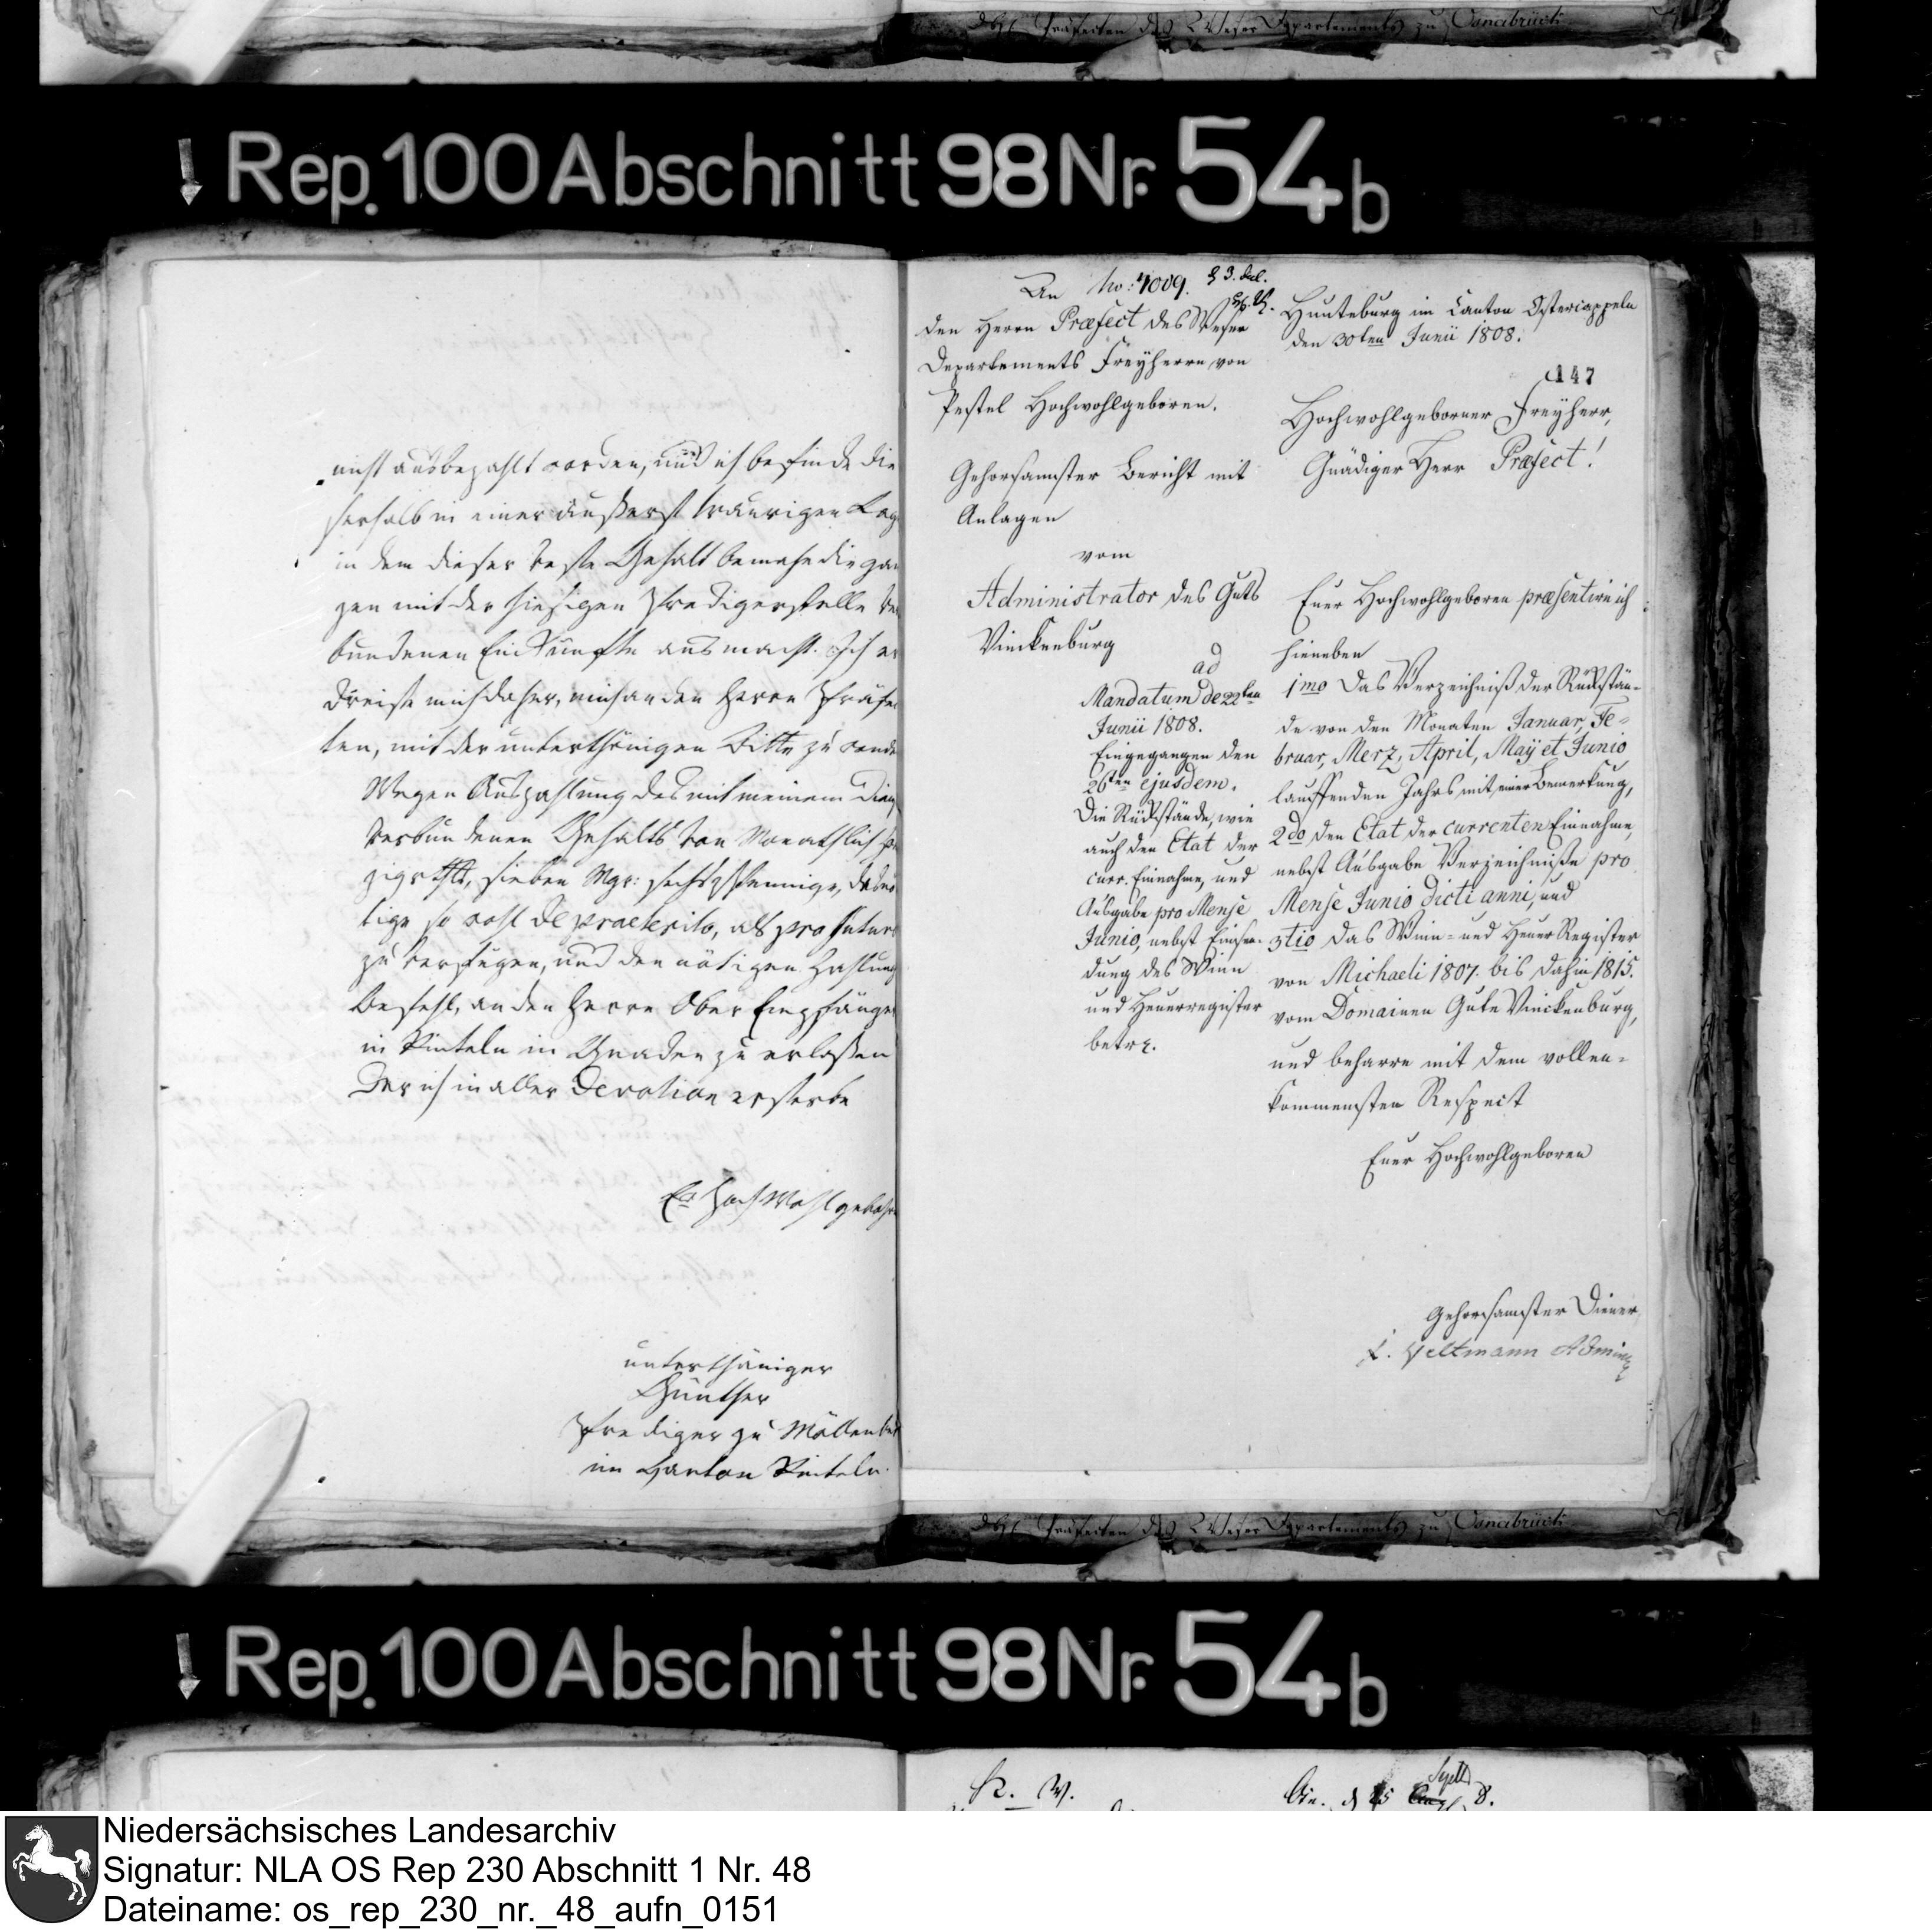 des Präfecten des Weser Departements zu Osnabrück
Rep. 100 Abschnitt 98 Nr. 54 b
nicht ausbezahlt worden, und ich befinde die
serhalb in einer äußerst traurigen Lag
in dem dieser beste Gehalt beinahe die gan
zen mit der hiesigen Predigerstelle ver
bundenen Einkünfte ausmacht. Ich er
dreiste mich daher, mich an den Herrn Präfec
ten, mit der unterthänigen Bitte zu wende
Wegen Auszahlung des mit meinem Dien
verbundenen Gehalts von Monathlich
zig rthlr, sieben Mgr: sechs Pfennige, das
tige so wohl de praeterito, als pro futuro
zu verfügen, und den nötigen Zahlung
Befehl, an den Herrn Ober Empfänger
in Rinteln in Gnaden zu erlaßen
Der ich in aller Devotion ersterbe
Ew HochWohlgebohr
unterthäniger
Günther
Prediger zu Möllenbe
im Canton Rinteln.
An No: 4009.
den Herrn Præfect des Weser
Departements Freyherrn von
Pestel Hochwohlgeboren.
Gehorsamster Bericht mit
Anlagen
vom
Administrator des Guts
Vinckenburg
ad
Mandatum de 22ten
Junii 1808.
Eingegangen den
26sten ejusdem.
Die Rückstände, wie
auch den Etat der
curr. Einnahme, und
Ausgabe pro Mense
Junio, nebst Einsen-
dung des Winn
und Heuerregister
betr.
Hunteburg im Canton Ostercappeln
den 30ten Junii 1808.
147
Hochwohlgeborner Freyherr,
Gnädiger Herr Præfect!
Euer Hochwohlgeboren præsentire ich
hieneben
1mo Das Verzeichniß der Rückstän-
de von den Monaten Januar, Fe-
bruar, Merz, April, Maÿ et Junio
lauffenden Jahrs mit einer Bemerkung,
2do den Etat der currenten Einnahme,
nebst Ausgabe Verzeichniße pro
Mense Junio dicti anni, und
3tio das Winn- und Heuer Register
von Michaeli 1807. bis dahin 1815.
vom Domainen Gute Vinckenburg,
und beharre mit dem vollen-
kommensten Respect
Euer Hochwohlgeboren
Gehorsamster Diener
Veltmann Admin
des Präfecten des Weser Departements zu Osnabrück
Rep. 100 Abschnitt 98 Nr. 54 b
K. W.
Niedersächsisches Landesarchiv
Signatur: NLA OS Rep 230 Abschnitt 1 Nr. 48
Dateiname: os_rep_230_nr._48_aufn_0151